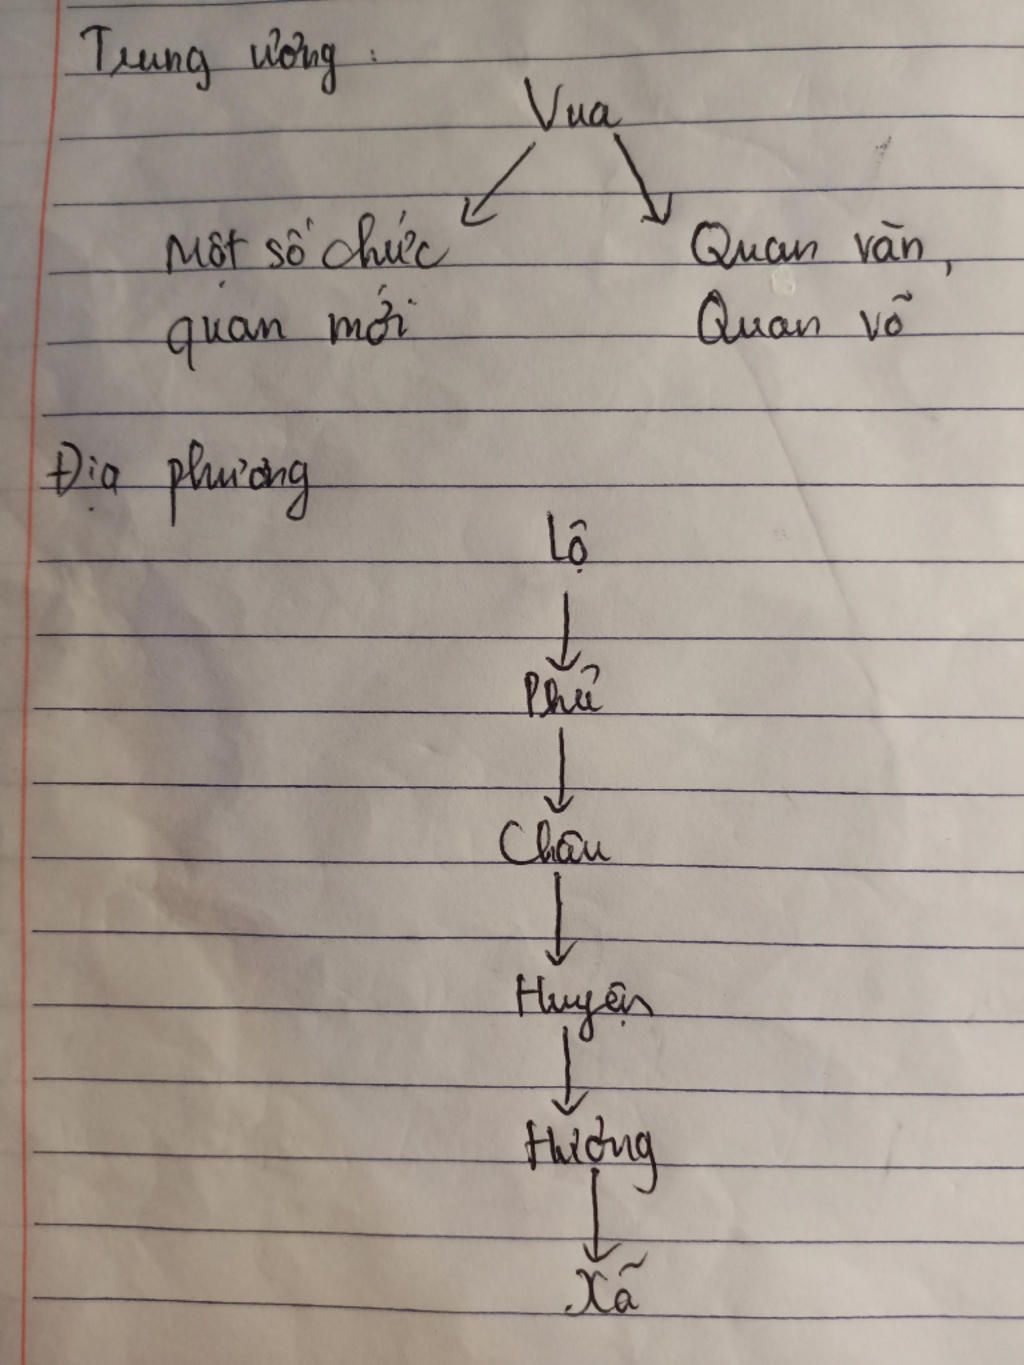 Trung ương :
Vua
Một số chức
quan mới
Quan văn,
Quan võ
Địa phương
Lộ
Phủ
Châu
Huyện
Hương
Xã